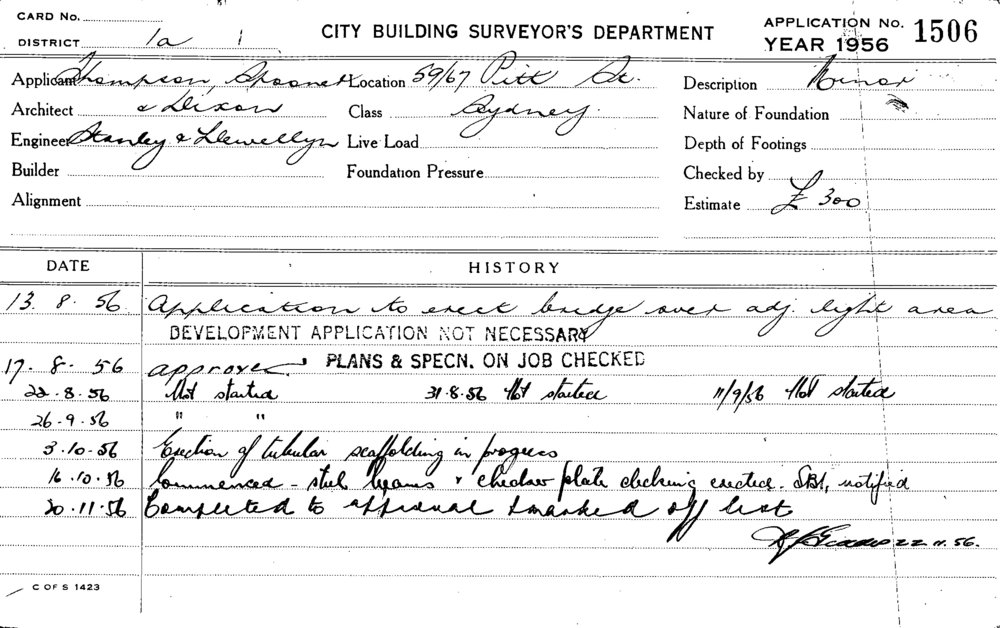 CARD No.
DISTRICT 1a 1
CITY BUILDING SURVEYOR'S DEPARTMENT
APPLICATION No. 1506
YEAR 1956
Applicant Thompson, Spooner Location 59/67 Pitt St. Description Minor
Architect & Dixon Class Sydney. Nature of Foundation
Engineer Stanley & Llewellyn Live Load Depth of Footings
Builder Foundation Pressure Checked by
Alignment Estimate £ 300
DATE HISTORY
13. 8. 56 Application to erect bridge over adj. light area
DEVELOPMENT APPLICATION NOT NECESSARY
17. 8. 56 approved. PLANS & SPECN. ON JOB CHECKED
22.8.56 Not started 31.8.56 Not started 11/9/56 Not started
26.9.56 " "
3.10.56 Erection of tubular scaffolding in progress
16.10.56 Commenced - steel beams & checker plate decking erected. notified
20.11.56 Completed to approval & marked off list
22.11.56.
C OF S 1423